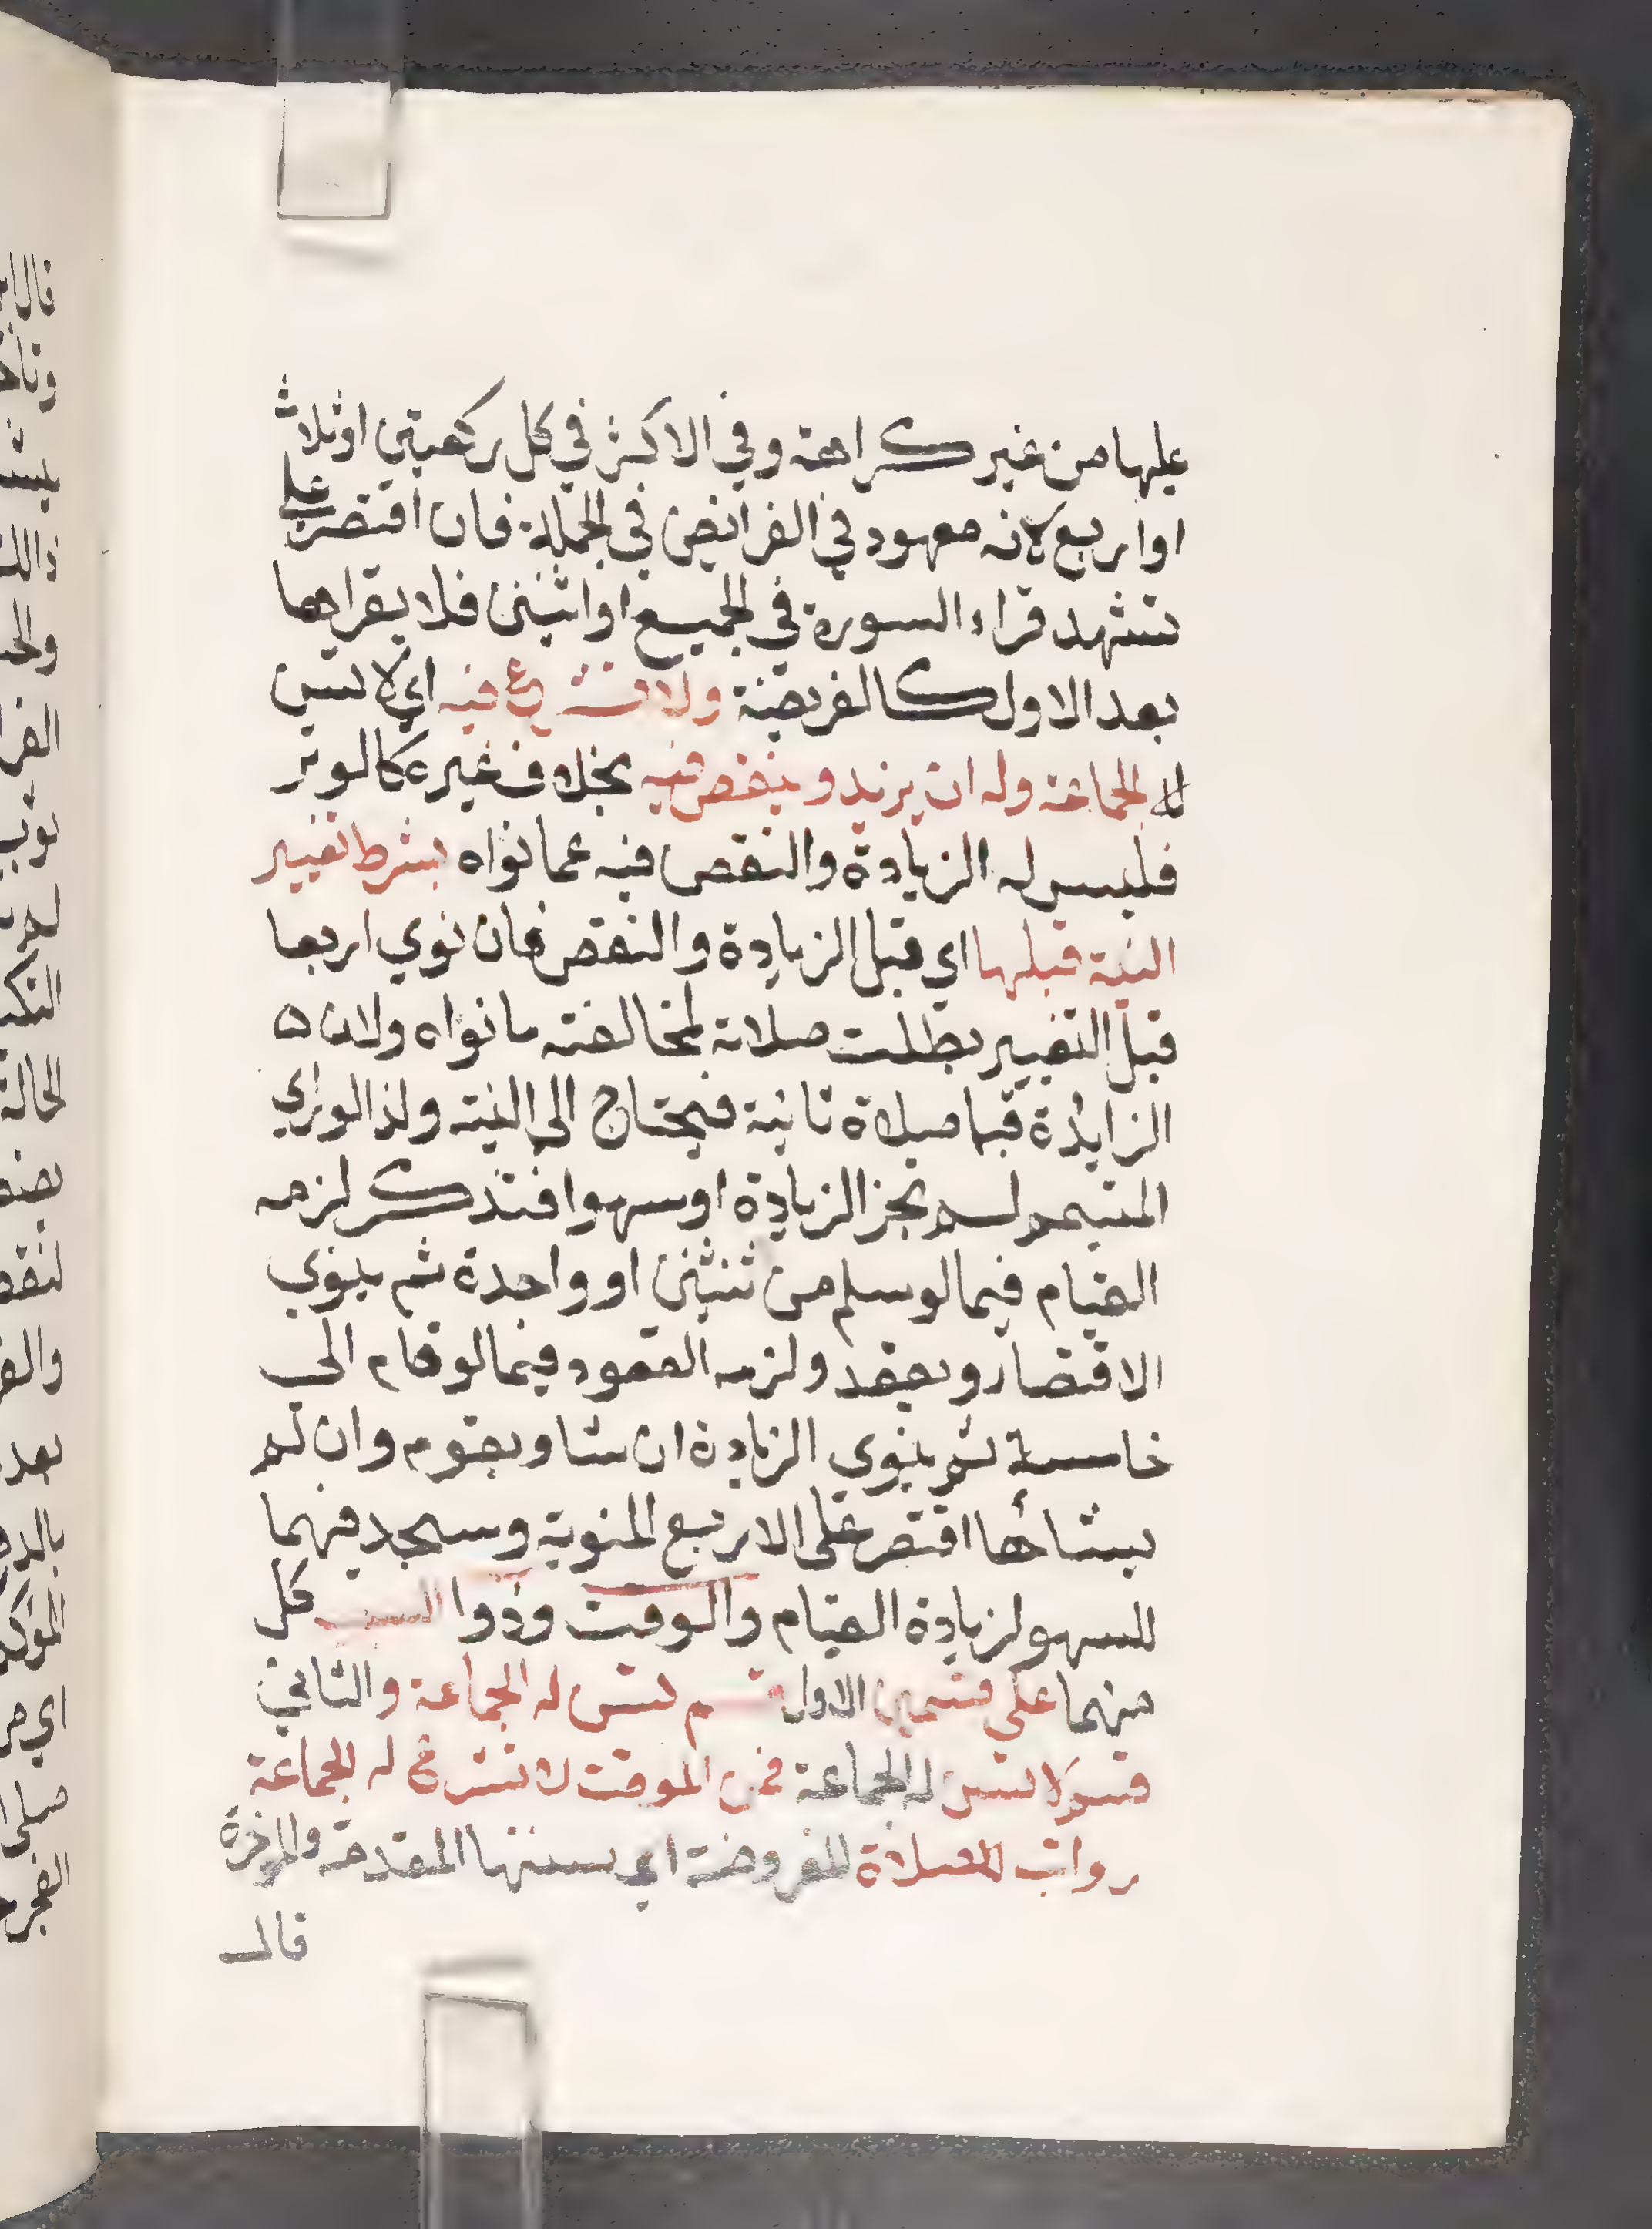 عليها من غير كراهة وفي الاكثر في كل ركعتين او ثلاث
او اربع لانه معهود في الفرائض في الجملة فان اقتصر على
تشهد قراء السورة في الجميع او اثنين فلا يقراها
بعد الاول كالفريضة ولا تشرع فيه اي لا تسن
الجماعة وله ان يزيد و ينقص فيه بخلاف غيره كالوتر
فليس له الزيادة والنقص فيه عما نواه بشرط تغيير
النية قبلها اي قبل الزيادة والنقص فان نوي اربعا
قبل التغيير بطلت صلاته لمخالفته ما نواه ولان ه
الزايدة صلاة ثانية فيحتاج الى النية ولذا لو راي
المتيمم لم تجز الزيادة او سهوا فتذكر لزمه
القيام فيما لو سلم من ثنتين او واحدة ثم ينوي
الاقتصار ويعقد ولزمه القعود فيما لو قام الى
خامسة ثم ينوي الزيادة ان شا ويقوم وان لم
يشأها اقتصر على الاربع المنوية وسجد فيهما
للسهو لزيادة القيام والوقت وذوا السبب كل
منهما على قسمين الاول قسم تسن له الجماعة والثاني
قسم لا تسن له الجماعة فمن الموقت لا تشرع له الجماعة
رواتب الصلاة المفروضة اي سننها المقدمة والمؤخرة
قال